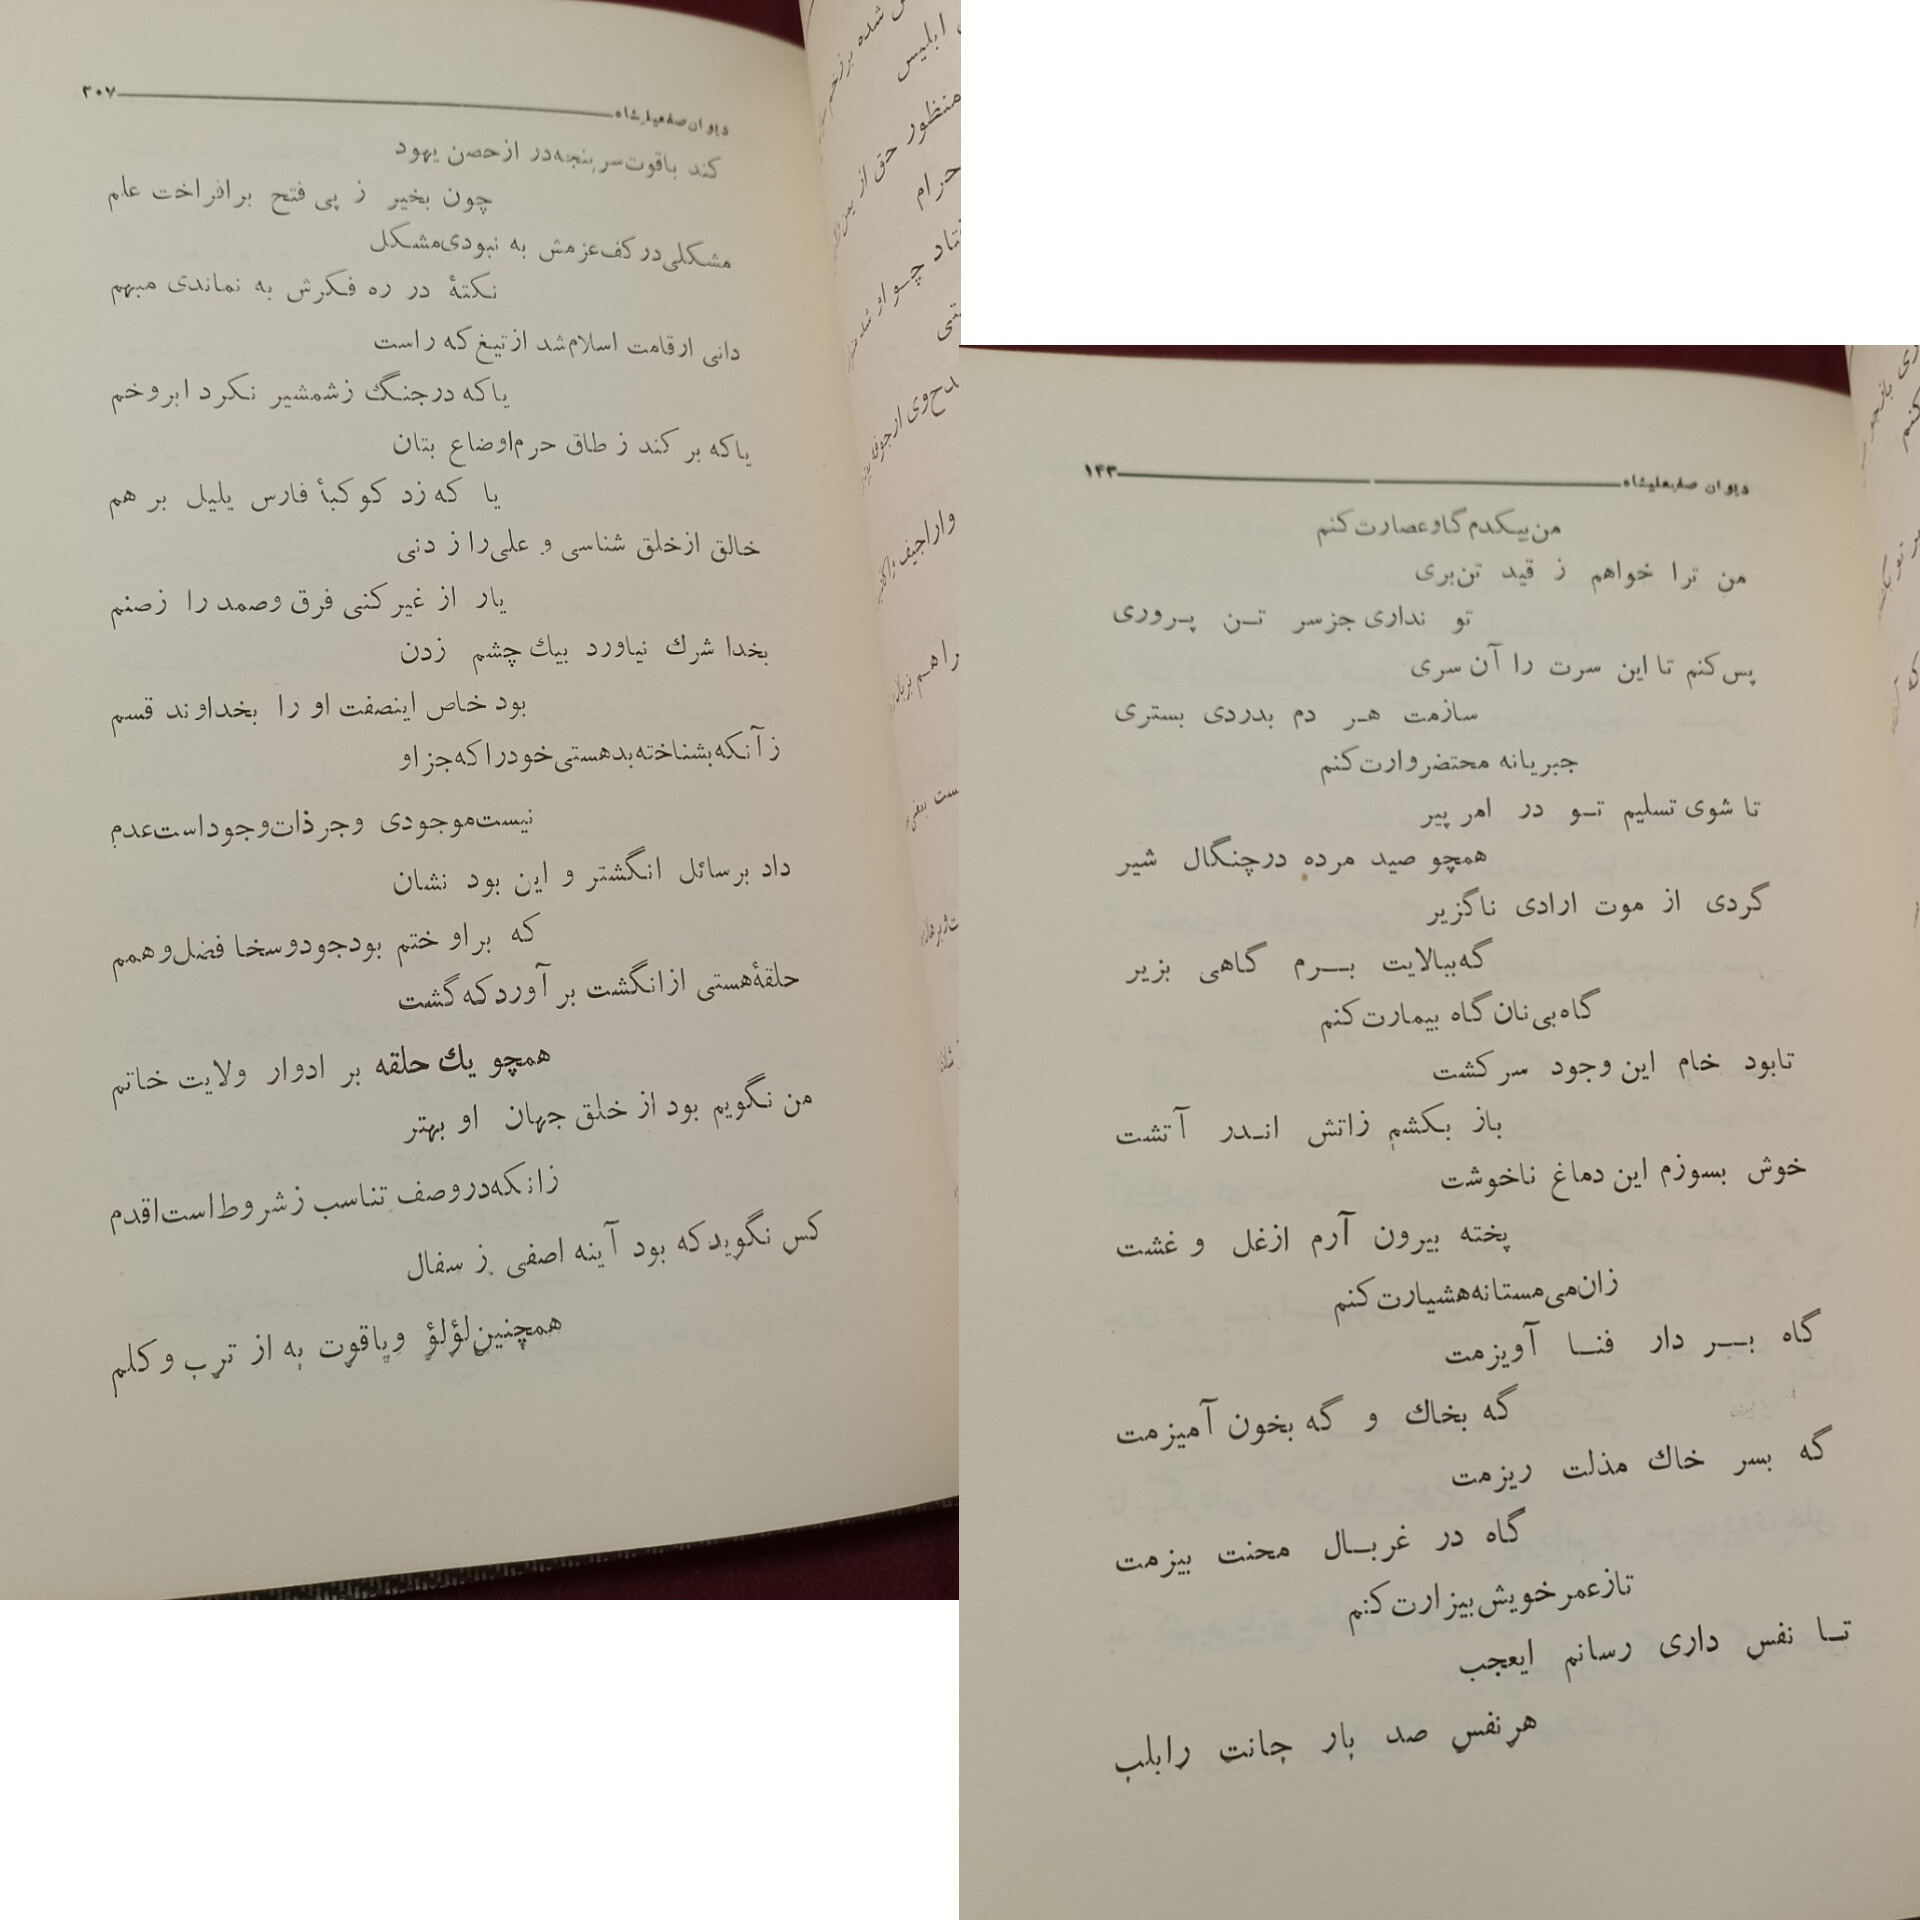 دیوان صفیعلیشاه ۳۰۷
کند باقوت سرپنجه در ازحصن یهود
چون بخیر ز پی فتح برافراخت علم
مشکلی در کف عزمش به نبودی مشکل
نکتهٔ در ره فکرش به نماندی مبهم
دانی ارقامت اسلام شد از تیغ که راست
یا که در جنگ ز شمشیر نکرد ابرو خم
یا که بر کند ز طاق حرم اوضاع بتان
یا که زد کوکبهٔ فارس یلیل بر هم
خالق از خلق شناسی و علی را ز دنی
یار از غیر کنی فرق و صمد را ز صنم
بخدا شرك نیاورد بیك چشم زدن
بود خاص اینصفت او را بخداوند قسم
زآنکه بشناخته بد هستی خود را که جز او
نیست موجودی و جز ذات وجود است عدم
داد بر سائل انگشتر و این بود نشان
که بر او ختم بود جود و سخا فضل و همم
حلقهٔ هستی از انگشت بر آورد که گشت
همچو یك حلقه بر ادوار ولایت خاتم
من نگویم بود از خلق جهان او بهتر
زانکه در وصف تناسب ز شروط است اقدم
کس نگوید که بود آینه اصفی ز سفال
همچنین لؤلؤ و یاقوت به از ترب و کلم
دیوان صفیعلیشاه ۱۴۳
من بیکدم گاو عصارت کنم
من ترا خواهم ز قید تن بری
تو نداری جز سر تن پروری
پس کنم تا این سرت را آن سری
سازمت هر دم بدردی بستری
جبریانه محتضروارت کنم
تا شوی تسلیم تو در امر پیر
همچو صید مرده در چنگال شیر
گردی از موت ارادی ناگزیر
گه ببالایت برم گاهی بزیر
گاه بی نان گاه بیمارت کنم
تا بود خام این وجود سرکشت
باز بکشم زاتش اندر آتشت
خوش بسوزم این دماغ ناخوشت
پخته بیرون آرم از غل و غشت
زان می مستانه هشیارت کنم
گاه بر دار فنا آویزمت
گه بخاك و گه بخون آمیزمت
گه بسر خاك مذلت ریزمت
گاه در غربال محنت بیزمت
تا ز عمر خویش بیزارت کنم
تا نفس داری رسانم ایعجب
هر نفس صد بار جانت را بلب